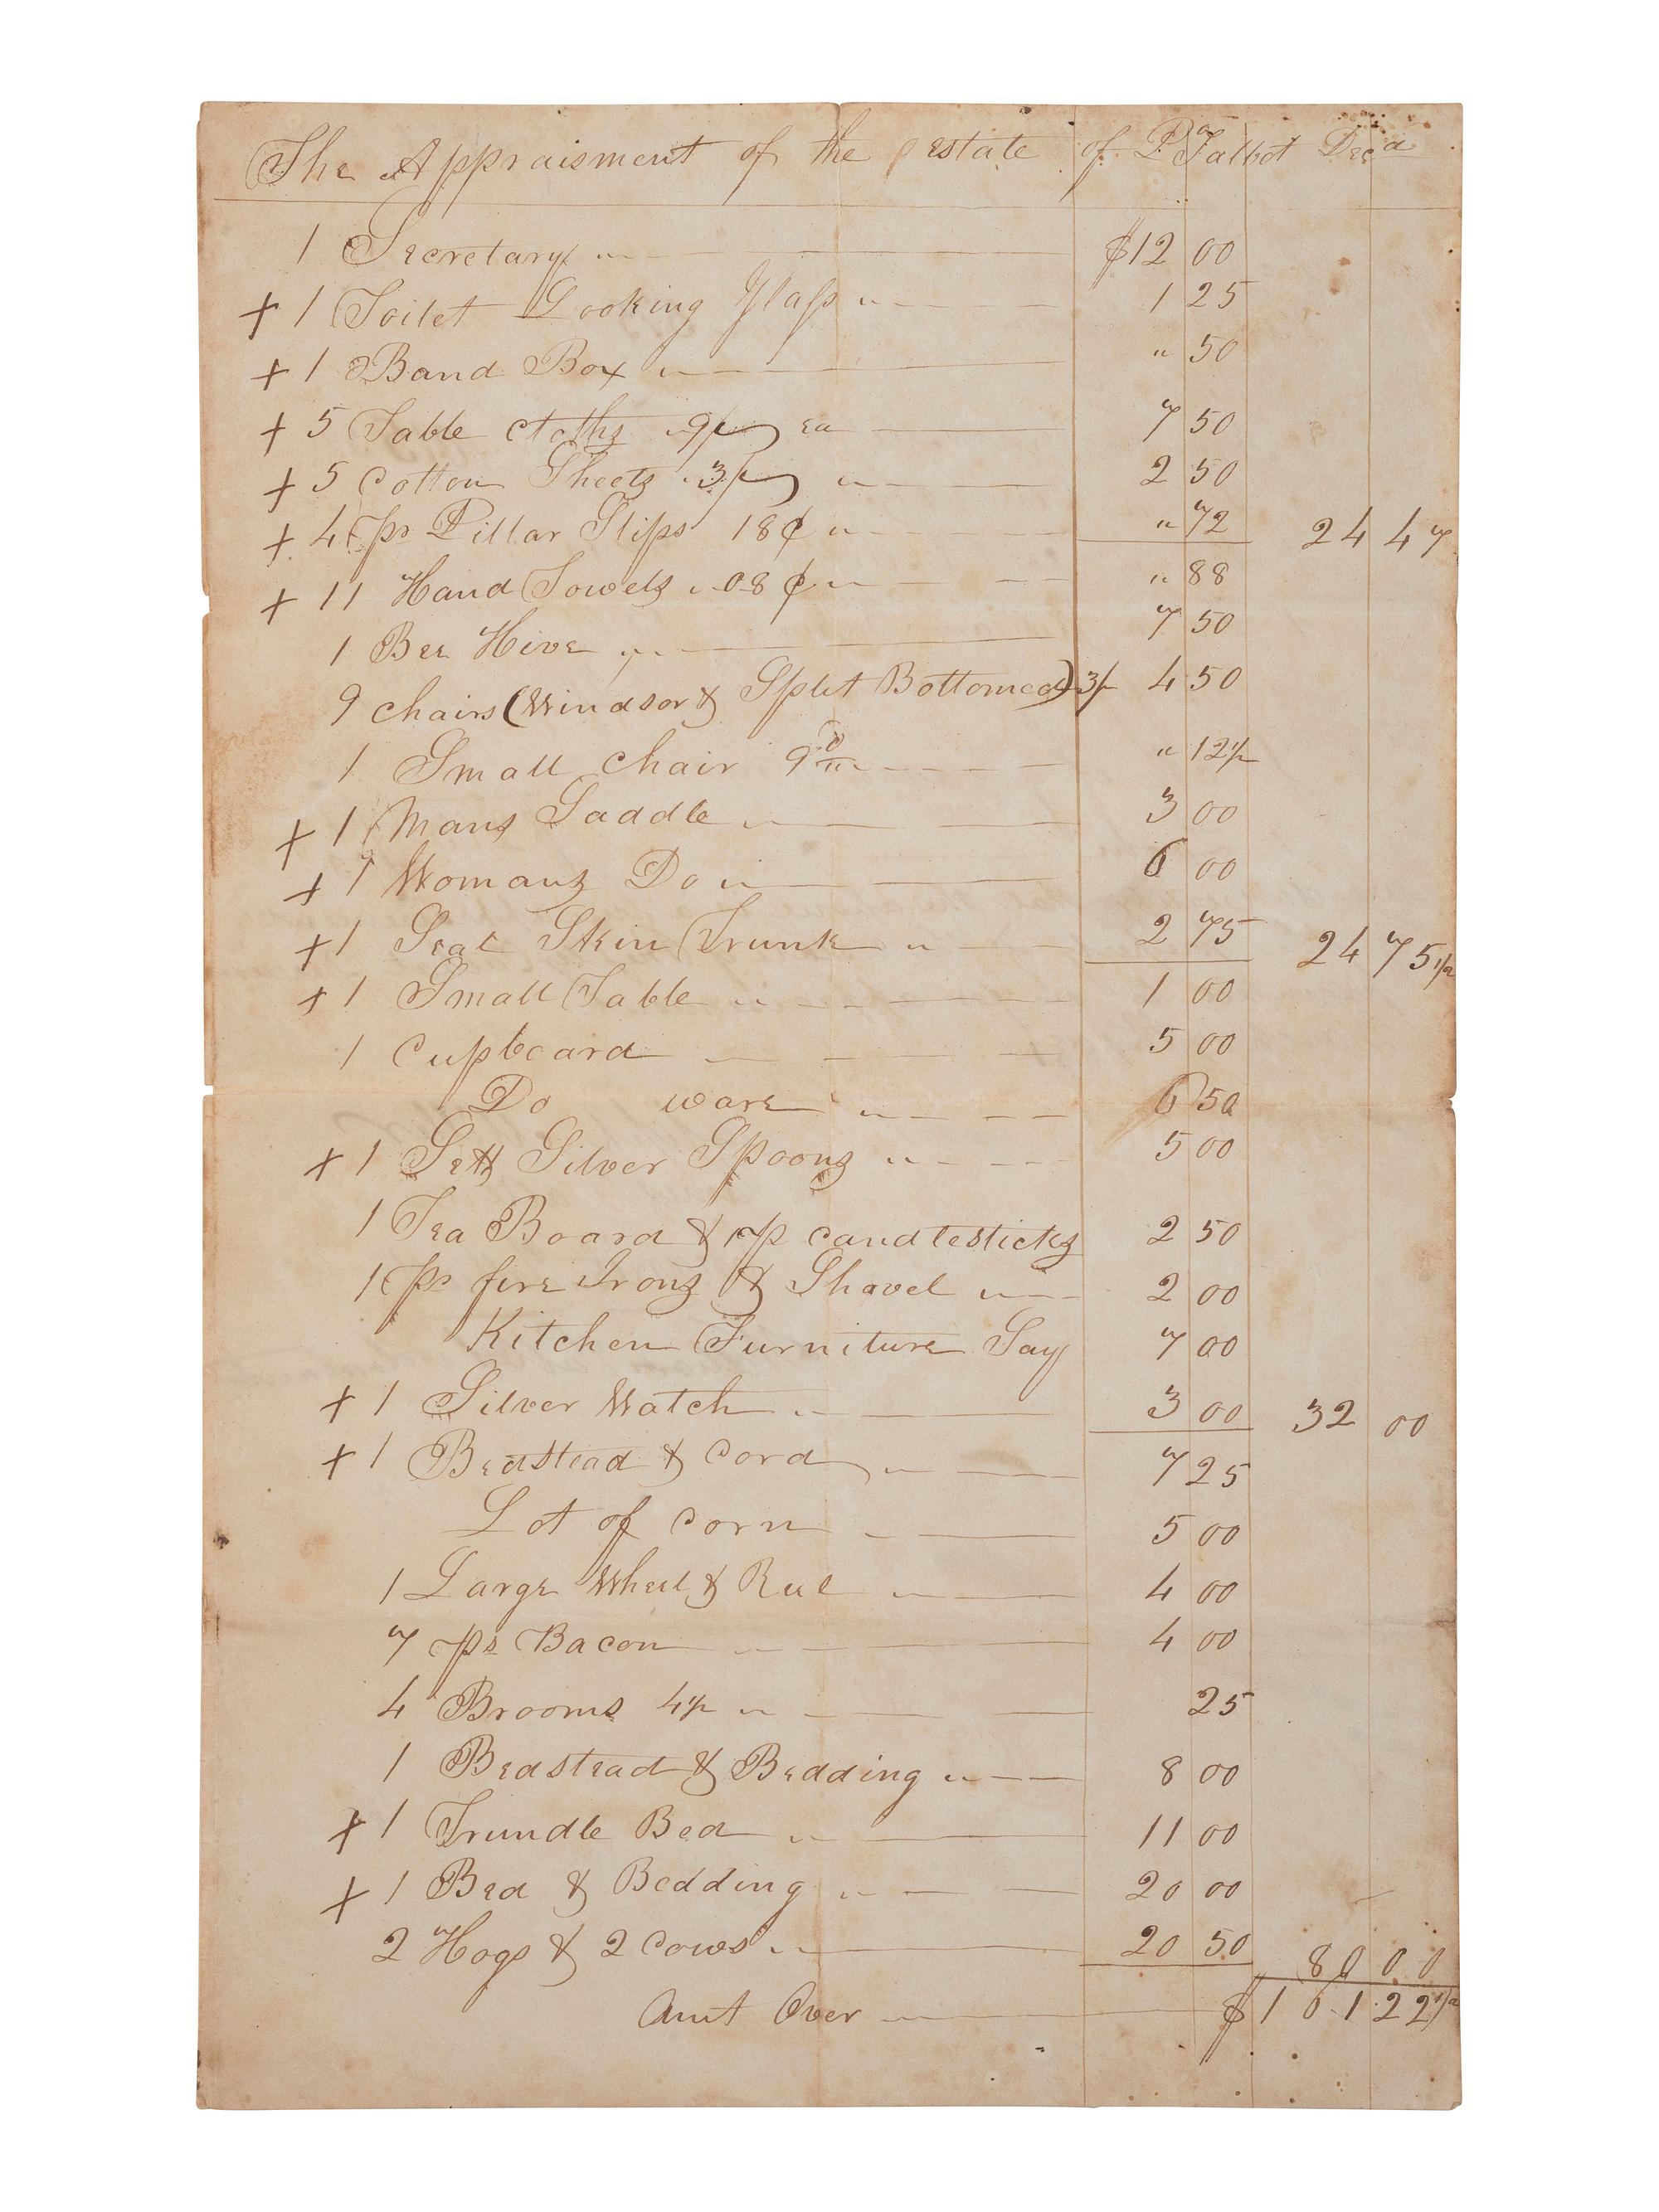 The Appraisment of the estate of P Talbot Decd
1 Secretary " $12 00
+ 1 Toilet Looking Glass " 1 25
+ 1 Band Box " " 50
+ 5 Table Cloths 9/ ea 7 50
+ 5 Cotton Sheets " 3/ " 2 50
+ 4 pr Pillar Slips 18 ¢ " " 72 24 47
+ 11 Hand Towels " 08 ¢ " " 88
1 Bee Hive " 7 50
9 chairs (Windsor & Split Bottomed) 3/ 4 50
1 Small Chair 9d " 12 1/2
+ 1 Mans Saddle " 3 00
+ 1 Womans Do " 6 00
+ 1 Seal Skin Trunk " 2 75 24 75 1/2
+ 1 Small Table " 1 00
1 Cupboard 5 00
Do ware " 6 50
+ 1 Sett Silver Spoons " 5 00
1 Tea Board & p candlesticks 2 50
1 pr fire Irons & Shovel " 2 00
Kitchen Furniture Say 7 00
+ 1 Silver Watch " 3 00 32 00
+ 1 Bedstead & Cord " 7 25
Lot of Corn 5 00
1 Large Wheel & Reel " 4 00
7 ps Bacon " 4 00
4 Brooms 4p " 25
1 Bedstead & Bedding " 8 00
+ 1 Trundle Bed " 11 00
+ 1 Bed & Bedding " 20 00
2 Hogs & 2 Cows " 20 50 80 00
Amt Over $161 22 1/2